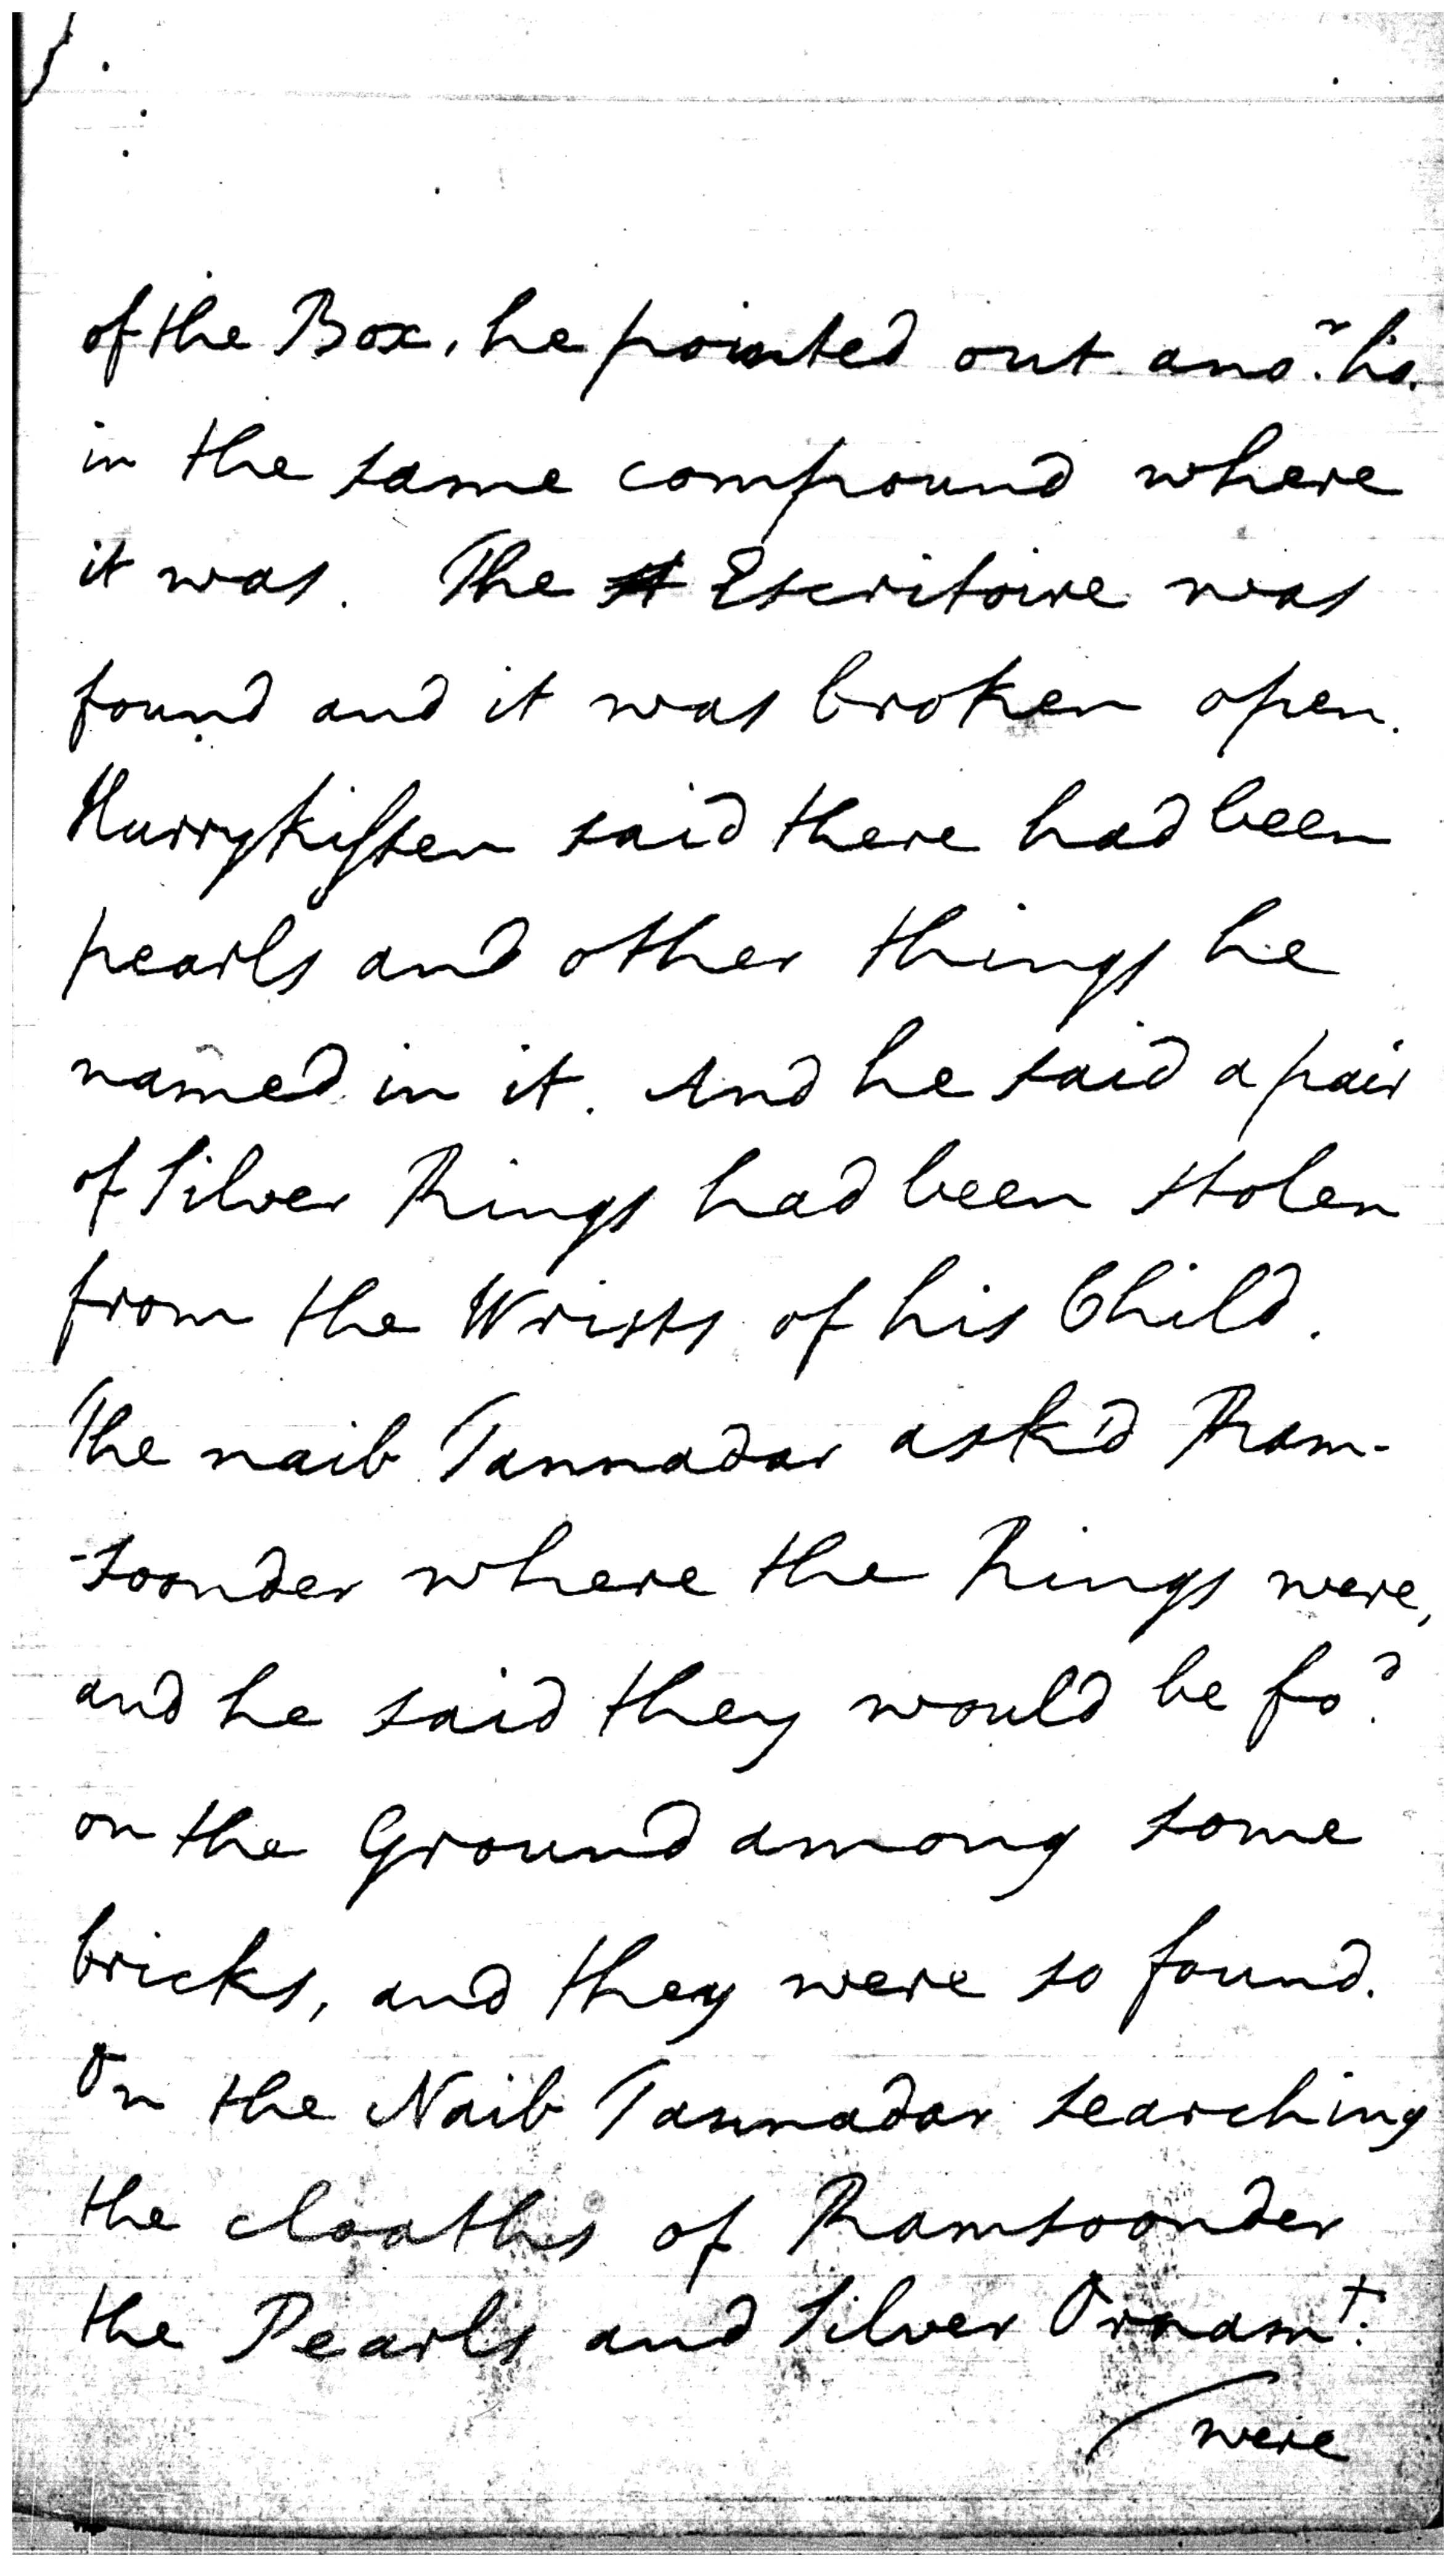 of the Box, he pointed out ano.^r ho.
in the same compound where
it was. The Escritoire was
found and it was broken open.
Hurrykissen said there had been
pearls and other things he
named in it. And he said a pair
of Silver Rings had been stolen
from the Wrists of his Child.
The naib Tannadar ask'd Ram-
-soonder where the Rings were,
and he said they would be fo.^d
on the Ground among some
bricks, and they were so found.
On the Naib Tannadar searching
the cloaths of Ramsoonder
the Pearls and Silver Ornam^t:
were